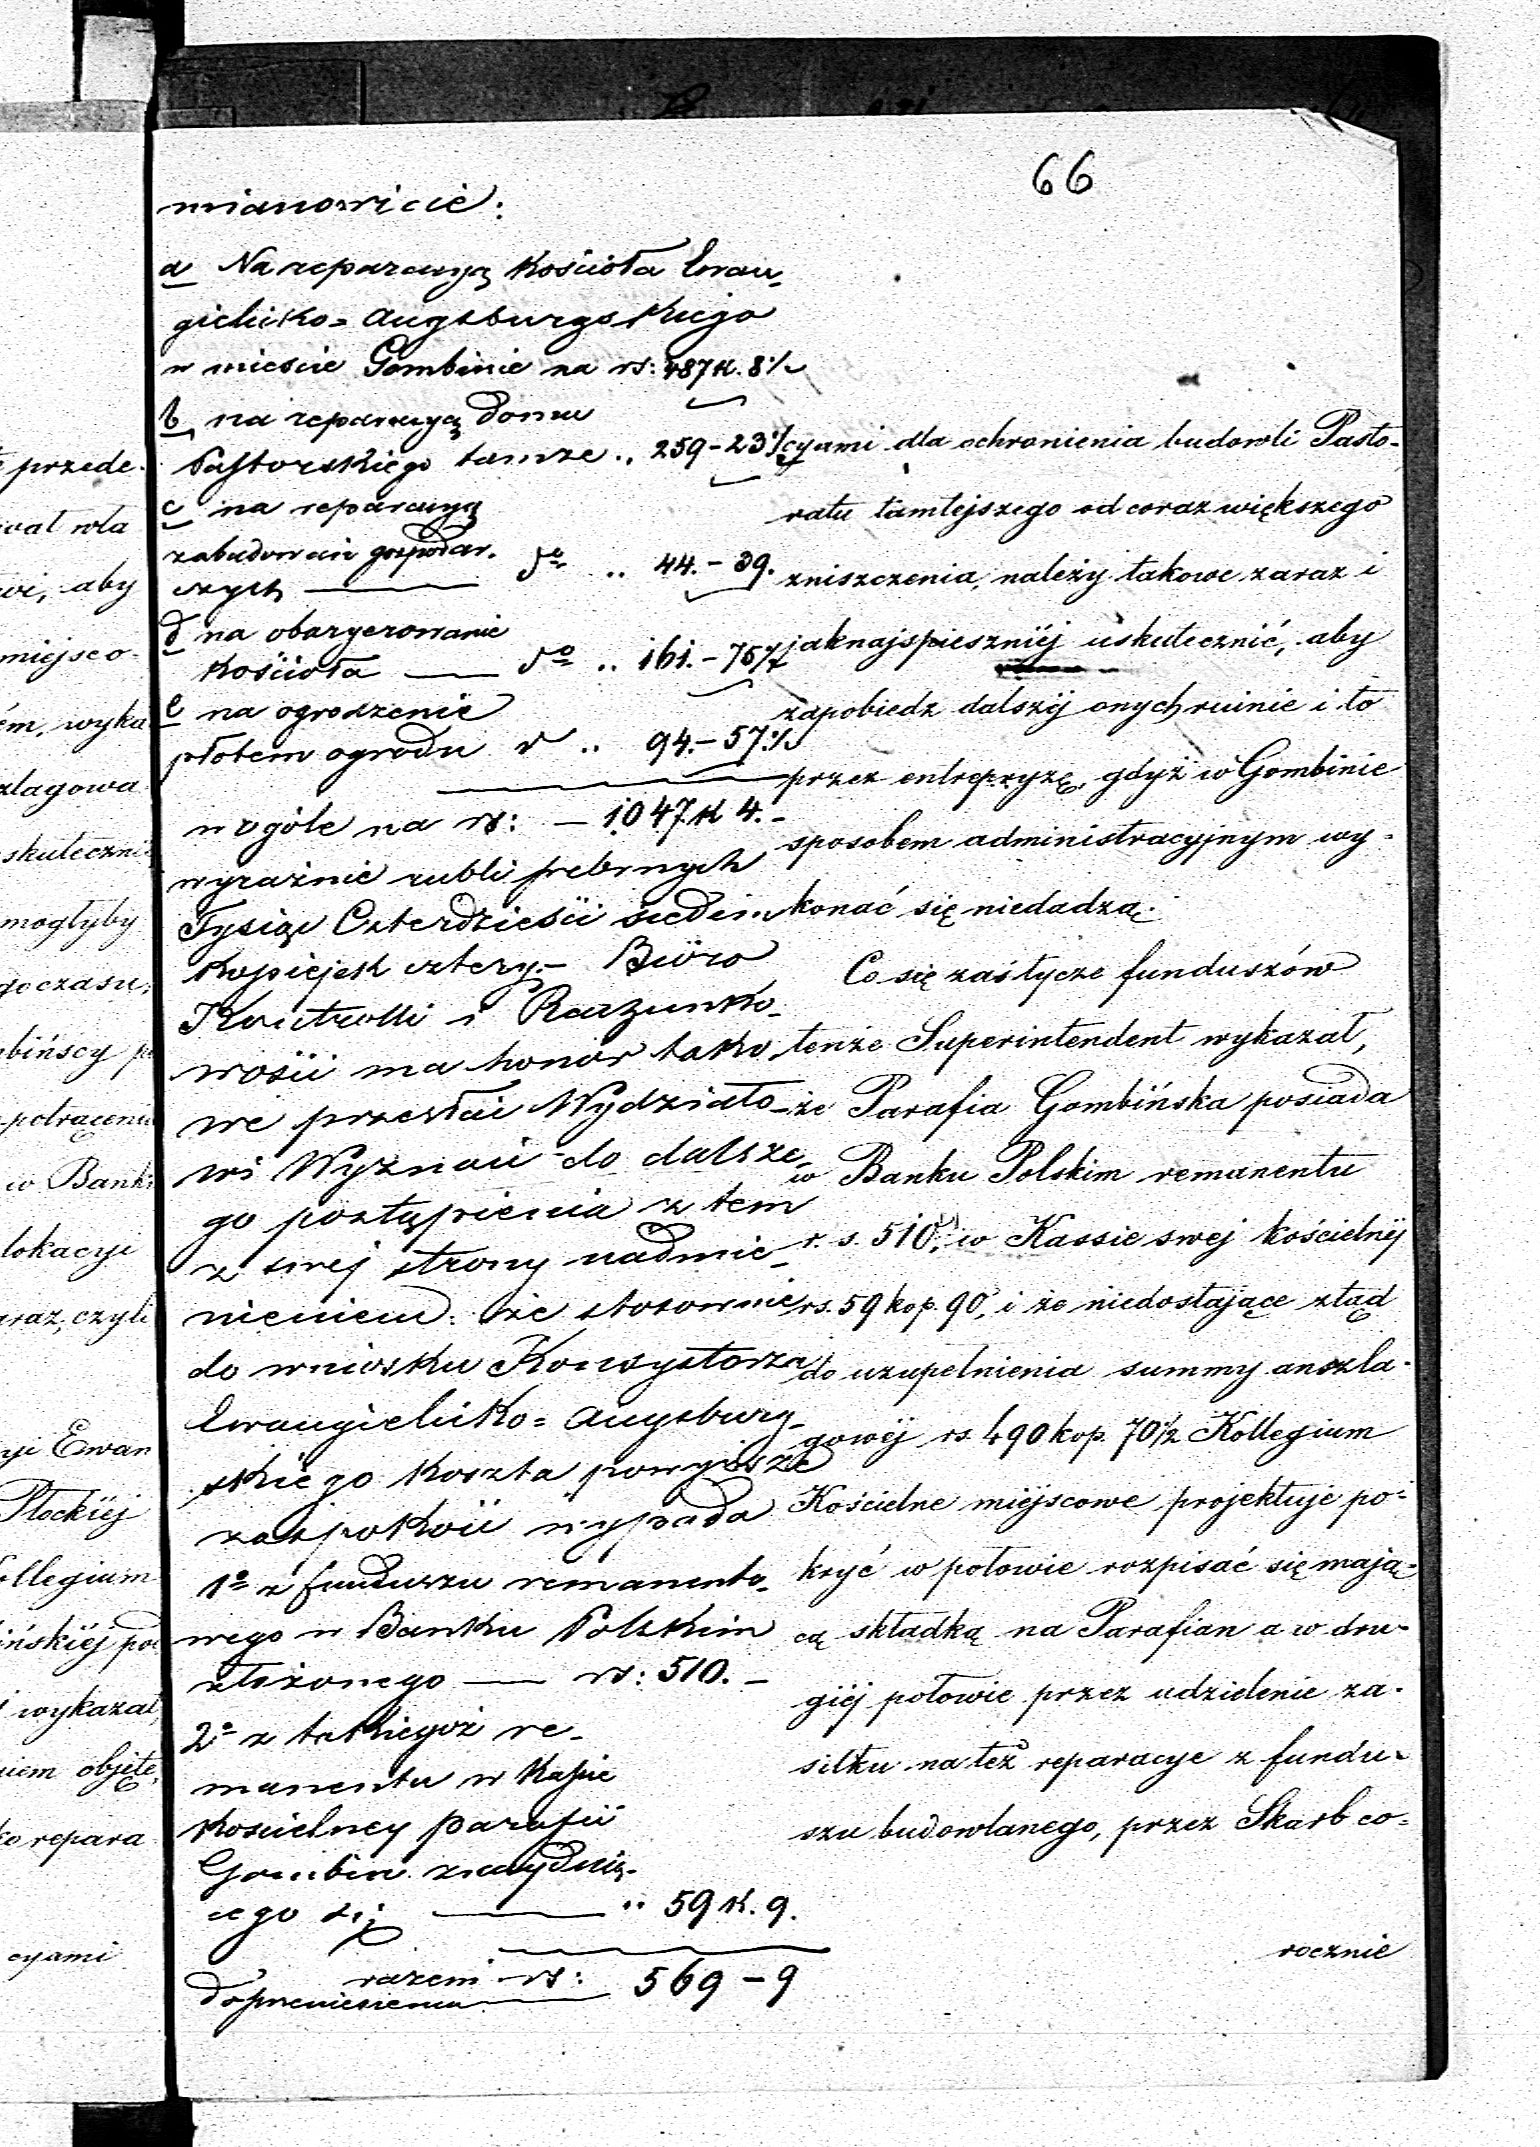 66
mianowicie:
a Na reparacyą Kościoła Ewan-
gielicko=Augsburgskiego
w mieście Gombinie na rs: 487 k. 8 1/2
b, na reparacyą domu
Pastorskiego tamże .. 259 - 23 1/2
c na reparacyą
zabudowań gospodar-
czych — do .. 44. - 39.
d na obaryerowanie
Kościoła — do .. 161. - 75 1/2
e na ogrodzenie
płotem ogrodu d .. 94. - 57 1/2
w ogóle na rs: — 1047 k 4. -
wyraźnie rubli srebrnych
Tysiąc Czterdzieści siedem
kopiejek cztery. - Biuro
Kontrolli i Rachunko-
wości ma honor tako,
we przesłać Wydziało-
wi Wyznań do dalsze-
go postąpienia z tem
z swej strony nadmie-
nieniem: że stosownie
do wniosku Konsystorza
Ewangielicko=Augsburg-
skiego koszta powyższe
zaspokoić wypada
1o z funduszu remanento-
wego w Banku Polskim
złożonego — rs: 510. -
2o z takiegoż re-
manentu w Kasie
Kościelney parafii
Gombin. znaydują-
cego się — .. 59 k. 9.
razem rs: 569 - 9
do przeniesienia
cyami dla ochronienia budowli Pasto-
ratu tamtejszego od coraz większego
zniszczenia, należy takowe zaraz i
jaknajspieszniéj uskutecznić, aby
zapobiedz dalszéj onych ruinie i to
przez entrepryzę, gdyż w Gombinie
sposobem administracyjnym wy-
konać się niedadzą.
Co się zaś tycze funduszów
tenże Superintendent wykazał,
że Parafia Gombińska posiada
w Banku Polskim remanentu
r. s. 510, w Kassie swej kościelnéj
rs. 59 kop. 90, i że niedostające ztąd
do uzupełnienia summy anszla-
gowéj rs. 490 kop. 70 1/2 Kollegium
Kościelne miéjscowe projektuje po-
kryć w połowie rozpisać się mają-
cą składką na Parafian a w dru-
giéj połowie przez udzielenie za-
siłku na też reparacye z fundu-
szu budowlanego, przez Skarb co-
rocznie
przede-
wał wła
wi, aby
miejsco-
ém, wyka
zlagowa
skuteczni
mogłyby
go czasu,
bińscy po
potrącenia
w Banku
lokacyi
zaraz, czyli
yi Ewan
Płockiéj
ollegium
ińskiéj po
i wykazał,
iem objęte,
ko repara
cyami